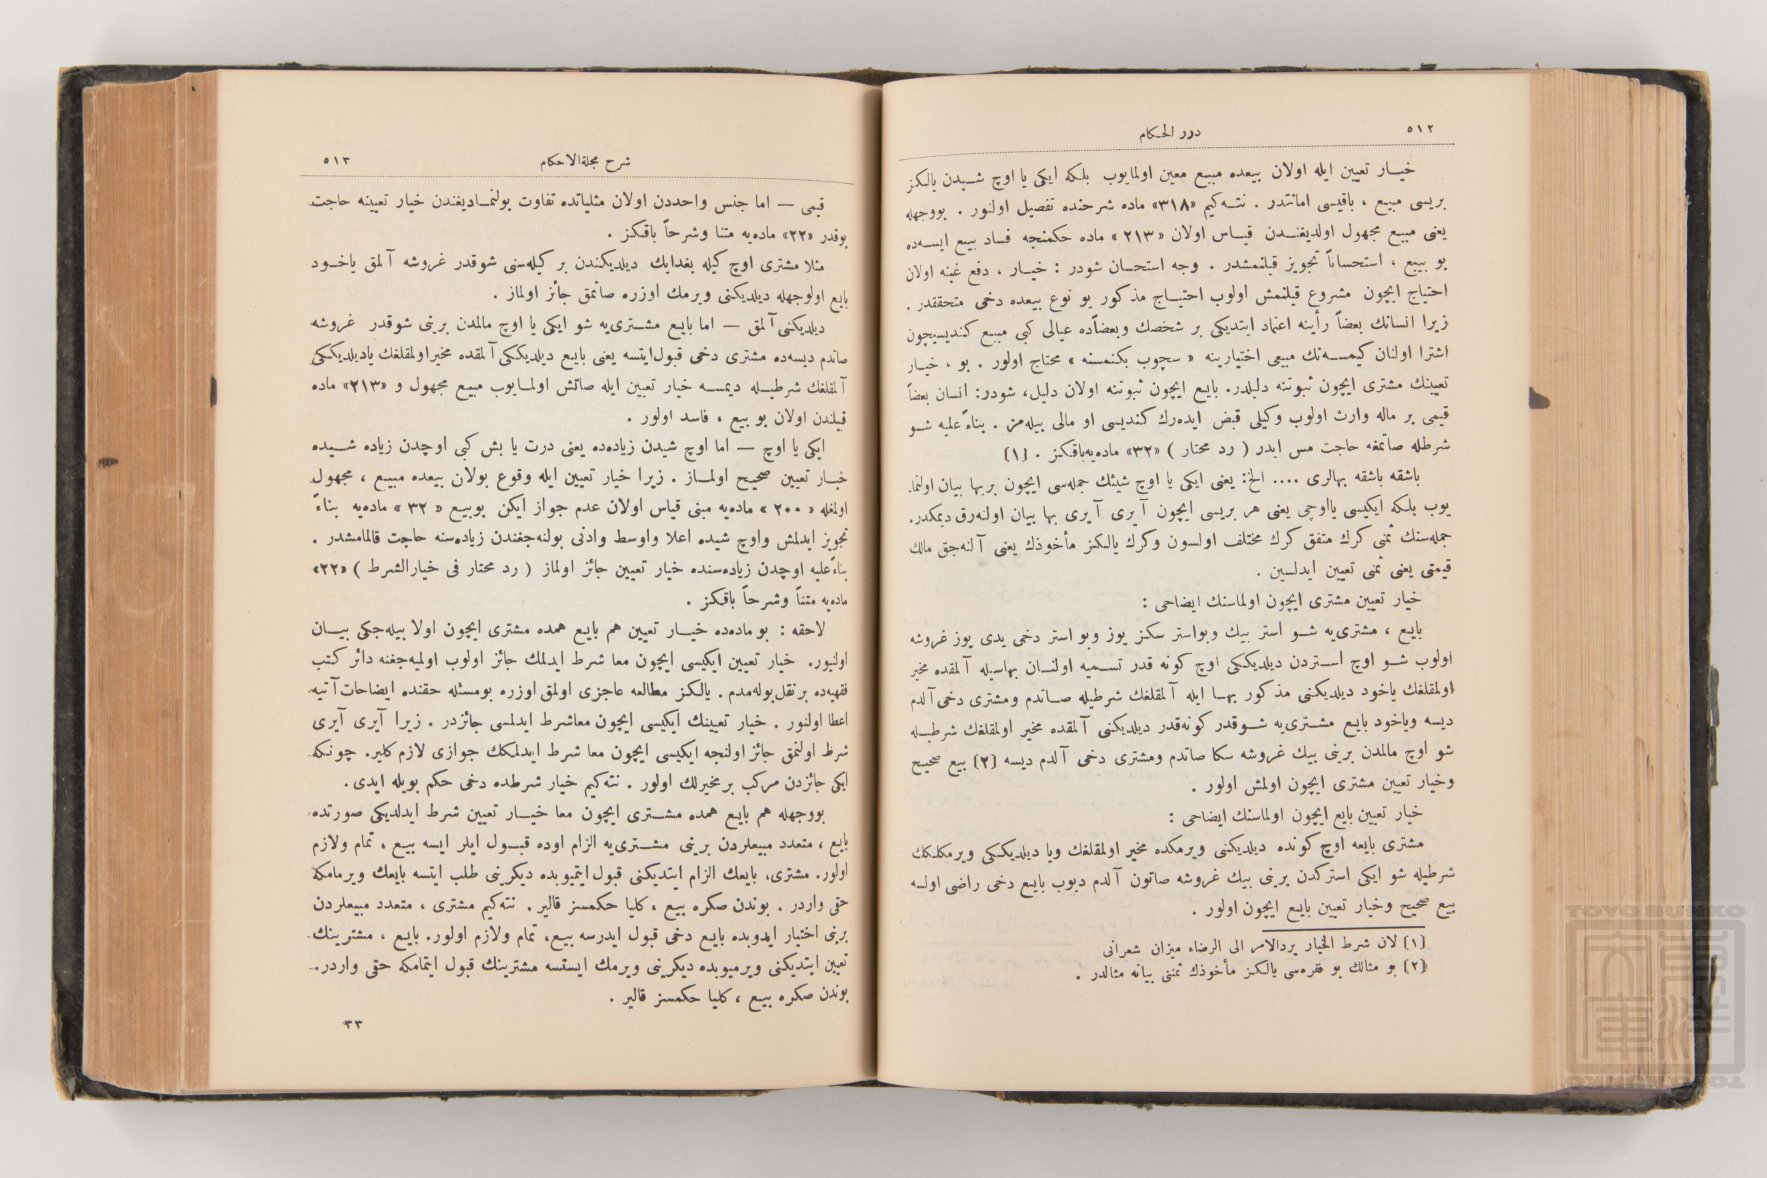 ٥١٢
درر الحكام
خيار تعيين ايله اولان بيعده مبيع معين اولمايوب بلكه ايكى يا اوچ شيدن يالكز
بريسى مبيع ، باقيسى امانتدر . نته‌كيم «٣١٨» ماده شرحنده تفصيل اولنور . بووجهله
يعنى مبيع مجهول اولديغندن قياس اولان «٢١٣» ماده حكمنجه فساد بيع ايسه‌ده
بو بيع ، استحساناً تجويز قيلنمشدر . وجه استحسان شودر : خيار ، دفع غبنه اولان
احتياج ايچون مشروع قيلنمش اولوب احتياج مذكور بو نوع بيعده دخى متحققدر .
زيرا انسانك بعضاً رأينه اعتماد ايتديكى بر شخصك وبعضاًده عيالى كبى مبيع كنديسيچون
اشترا اولنان كيمسه‌نك مبيعى اختيارينه « سچوب بكنمسنه » محتاج اولور . بو ، خيار
تعيينك مشترى ايچون ثبوتنه دليلدر. بايع ايچون ثبوتنه اولان دليل، شودر: انسان بعضاً
قيمى بر ماله وارث اولوب وكيلى قبض ايده‌رك كنديسى او مالى بيله‌مز . بناءً عليه شو
شرطله صاتمغه حاجت مس ايدر ( رد محتار ) «٣٢» ماده‌يه‌باقكز . (١)
باشقه باشقه بهالرى .... الخ: يعنى ايكى يا اوچ شيئك جمله‌سى ايچون بربها بيان اولنما-
يوب بلكه ايكيسى يااوچى يعنى هر بريسى ايچون آيرى آيرى بها بيان اولنه‌رق ديمكدر.
جمله‌سنك ثمنى كرك متفق كرك مختلف اولسون وكرك يالكز مأخوذك يعنى آلنه‌جق مالك
قيمتى يعنى ثمنى تعيين ايدلسين .
خيار تعيين مشترى ايچون اولماسنك ايضاحى :
بايع ، مشترى‌يه شو استر بيك وبواستر سكز يوز وبو استر دخى يدى يوز غروشه
اولوب شو اوچ استردن ديلديككى اوچ كونه قدر تسميه اولنان بهاسيله آلمقده مخير
اولمقلغك ياخود ديلديكنى مذكور بها ايله آلمقلغك شرطيله صاتدم ومشترى دخى آلدم
ديسه وياخود بايع مشترى‌يه شوقدر كونه‌قدر ديلديكنى آلمقده مخير اولمقلغك شرطيله
شو اوچ مالمدن برينى بيك غروشه سكا صاتدم ومشترى دخى آلدم ديسه (٢) بيع صحيح
وخيار تعيين مشترى ايچون اولمش اولور .
خيار تعيين بايع ايچون اولماسنك ايضاحى :
مشترى بايعه اوچ كونده ديلديكنى ويرمكده مخير اولمقلغك ويا ديلديككى ويرمكلكك
شرطيله شو ايكى استركدن برينى بيك غروشه صاتون آلدم ديوب بايع دخى راضى اولسه
بيع صحيح وخيار تعيين بايع ايچون اولور .
(١) لان شرط الخيار يردالامر الى الرضاء ميزان شعرانى
(٢) بو مثالك بو فقره‌سى يالكز مأخوذك ثمننى بيانه مثالدر .
شرح مجلةالاحكام
٥١٣
قيمى — اما جنس واحددن اولان مثلياتده تفاوت بولنماديغندن خيار تعيينه حاجت
يوقدر «٢٢» ماده‌يه متنا وشرحاً باقكز .
مثلا مشترى اوچ كيله بغدايك ديلديككندن بر كيله‌سنى شوقدر غروشه آلمق ياخود
بايع اولوجهله ديلديكنى ويرمك اوزره صاتمق جائز اولماز .
ديلديكنى آلمق — اما بايع مشترى‌يه شو ايكى يا اوچ مالمدن برينى شوقدر غروشه
صاتدم ديسه‌ده مشترى دخى قبول‌ايتسه يعنى بايع ديلديككى آلمقده مخيراولمقلغك ياديلديككى
آلمقلغك شرطيله ديمسه خيار تعيين ايله صاتش اولمايوب مبيع مجهول و «٢١٣» ماده
قبيلندن اولان بو بيع ، فاسد اولور .
ايكى يا اوچ — اما اوچ شيدن زياده‌ده يعنى درت يا بش كبى اوچدن زياده شيده
خيار تعيين صحيح اولماز . زيرا خيار تعيين ايله وقوع بولان بيعده مبيع ، مجهول
اولمغله « ٢٠٠ » ماده‌يه مبنى قياس اولان عدم جواز ايكن بوبيع « ٣٢ » ماده‌يه بناءً
تجويز ايدلمش واوچ شيده اعلا واوسط وادنى بولنه‌جغندن زياده‌سنه حاجت قالمامشدر .
بناءًعليه اوچدن زياده‌سنده خيار تعيين جائز اولماز ( رد محتار فى خيارالشرط ) «٢٢»
ماده‌يه متناً وشرحاً باقكز .
لاحقه : بو ماده‌ده خيار تعيين هم بايع همده مشترى ايچون اولا بيله‌جكى بيان
اولنيور. خيار تعيين ايكيسى ايچون معا شرط ايدلمك جائز اولوب اولميه‌جغنه دائر كتب
فقهيه‌ده بر نقل بوله‌مدم . يالكز مطالعه عاجزى اولمق اوزره بومسئله حقنده ايضاحات آتيه
اعطا اولنور . خيار تعيينك ايكيسى ايچون معاشرط ايدلمسى جائزدر . زيرا آيرى آيرى
شرط اولنمق جائز اولنجه ايكيسى ايچون معا شرط ايدلمكك جوازى لازم كلير. چونكه
ايكى جائزدن مركب بر مخيرلك اولور . نته‌كيم خيار شرطده دخى حكم بويله ايدى.
بووجهله هم بايع همده مشترى ايچون معا خيار تعيين شرط ايدلديكى صورتده،
بايع ، متعدد مبيعلردن برينى مشترى‌يه الزام اوده قبول ايلر ايسه بيع ، تمام ولازم
اولور. مشترى، بايعك الزام ايتديكنى قبول ايتميوبده ديكرينى طلب ايتسه بايعك ويرمامكه
حقى واردر . بوندن صكره بيع ، كليا حكمسز قالير. نته‌كيم مشترى ، متعدد مبيعلردن
برينى اختيار ايدوبده بايع دخى قبول ايدرسه بيع، تمام ولازم اولور. بايع ، مشترينك
تعيين ايتديكنى ويرميوبده ديكرينى ويرمك ايستسه مشترينك قبول ايتمامكه حقى واردر.
بوندن صكره بيع ، كليا حكمسز قالير .
٣٣
TOYO BUNKO